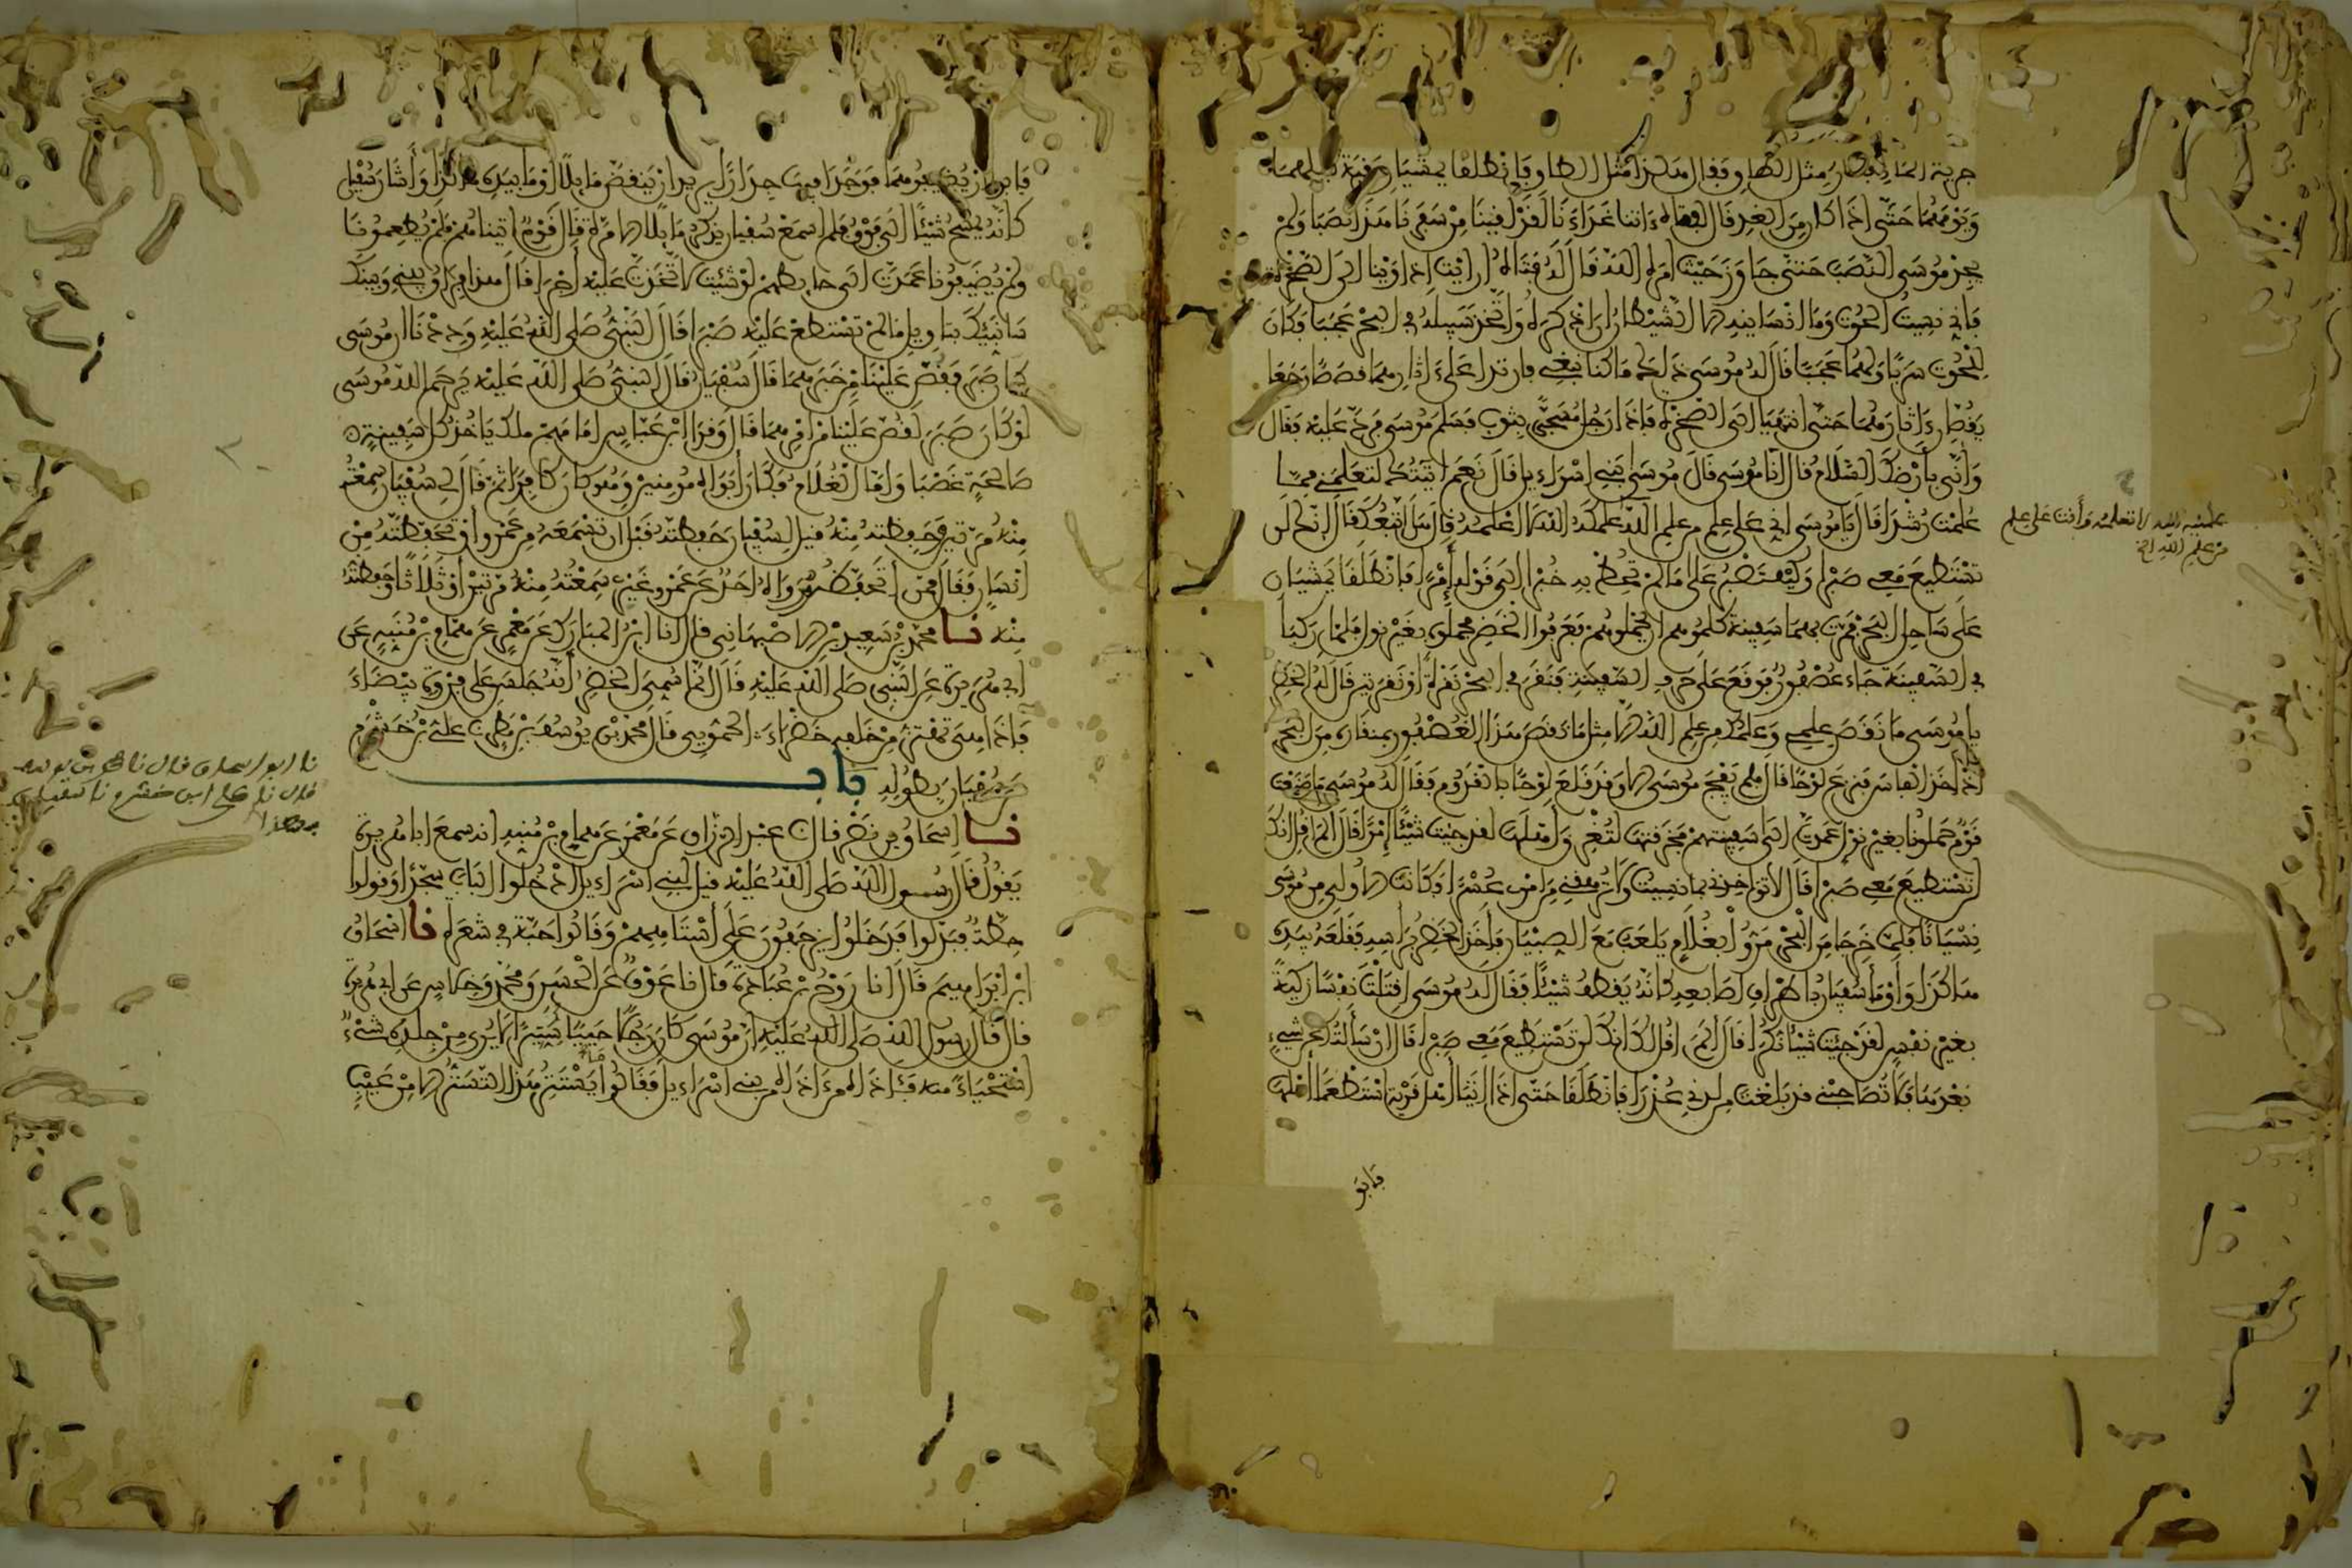 جرية الماء فصار مثل الطاق فقال هكذا مثل الطاق فانطلقا يمشيان بقية ليلهما
ويومهما حتى اذا كان من الغد قال لفتاه ءاتنا غداءنا لقد لقينا من سفرنا هذا نصبا ولم
يجد موسى النصب حتى جاوز حيث امره الله قال له فتاه أرايت اذ اوينا الى الصخرة
فاني نسيت الحوت وما أنسانيه الا الشيطان ان اذكره واتخذ سبيله في البحر عجبا فكان
للحوت سربا ولهما عجبا قال له موسى ذلك ما كنا نبغي فارتدا على ءاثارهما قصصا رجعا
يقصان ءاثارهما حتى انتهيا الى الصخرة فاذا رجل مسجى بثوب فسلم موسى فرد عليه فقال
وأنى بأرضك السلام قال انا موسى قال موسى بني اسراءيل قال نعم اتيتك لتعلمني مما
علمت رشدا قال يا موسى اني على علم من علم الله علمكه الله لا اعلمه قال هل اتبعك قال انك لن
علمنيه الله لا تعلمه وأنت على علم
من علم الله الخ
تستطيع معي صبرا وكيف تصبر على ما لم تحط به خبرا الى قوله إمرا فانطلقا يمشيان
على ساحل البحر فمرت بهما سفينة كلموهم ان يحملوهم فعرفوا الخضر فحملوه بغير نول فلما ركبا
في السفينة جاء عصفور فوقع على حرف السفينة فنقر في البحر نقرة أو نقرتين قال له الخضر
يا موسى ما نقص علمي وعلمك من علم الله الا مثل ما نقص هذا العصفور بمنقاره من البحر
اذ اخذ الفاس فنزع لوحا قال فلم يفجأ موسى الا وقد قلع لوحا بالقدوم فقال له موسى ما صنعت
قوم حملونا بغير نول عمدت الى سفينتهم فخرقتها لتغرق أهلها لقد جئت شيئا إمرا قال ألم اقل انك
لن تستطيع معي صبرا قال لا تواخذني بما نسيت ولا ترهقني من امري عسرا فكانت الاولى من موسى
نسيانا فلما خرجا من البحر مروا بغلام يلعب مع الصبيان فاخذ الخضر براسه فقلعه بيده
هاكذا وأومأ سفيان باطراف اصابعه كانه يقطف شيئا فقال له موسى اقتلت نفسا زكية
بغير نفس لقد جئت شيئا نكرا قال ألم اقل لك انك لن تستطيع معي صبرا قال ان سألتك عن شيء
بعدها فلا تصاحبني قد بلغت من لدني عذرا فانطلقا حتى اذا اتيا أهل قرية استطعما أهلها
فابو
فابوا ان يضيفوهما فوجدا فيها جدارا يريد ان ينقض مايلا أومأ بيده هاكذا وأشار سفيان
كانه يمسح شيئا الى فوق فلم اسمع سفيان يذكر مايلا الا مرة قال قوم اتيناهم فلم يطعمونا
ولم يضيفونا عمدت الى حايطهم لو شئت لاتخذت عليه أجرا قال هذا فراق بيني وبينك
سانبئك بتاويل ما لم تستطع عليه صبرا قال النبي صلى الله عليه وددنا ان موسى
كان صبر فقص علينا من خبرهما قال سفيان قال النبي صلى الله عليه يرحم الله موسى
لو كان صبر لقص علينا من امرهما قال وقرا ابن عباس امامهم ملك ياخذ كل سفينة
صالحة غصبا واما الغلام فكان أبواه مومنين وهو كان كافرا ثم قال لي سفيان سمعته
منه مرتين وحفظته منه قيل لسفيان حفظته قبل ان تسمعه من عمرو أو تحفظته من
انسان فقال ممن اتحفظه ورواه احد عن عمرو غيري سمعته منه مرتين أو ثلاثا وحفظته
منه نا محمد بن سعيد بن الاصبهاني قال انا ابن المبارك عن معمر عن همام بن منبه عن
ابي هريرة عن النبي صلى الله عليه قال انما سمي الخضر أنه جلس على فروة بيضاء
فاذا هي تهتز من خلفه خضراء الحمويي قال محمد بن يوسف بن مطر نا علي بن خشرم
عن سفيان بطوله باب
نا ابو اسحاق قال نا محمد بن يوسف
قال نا علي ابن خشرم نا سفيان
بهذا
نا اسحاق بن نصر قال نا عبد الرزاق عن معمر عن همام بن منبه انه سمع ابا هريرة
يقول قال رسول الله صلى الله عليه قيل لبني اسراءيل ادخلوا الباب سجدا وقولوا
حطة فبدلوا فدخلوا يزحفون على أستاههم وقالوا حبة في شعرة نا اسحاق
ابن ابراهيم قال انا روح بن عبادة قال نا عوف عن الحسن ومحمد وخلاس عن ابي هريرة
قال قال رسول الله صلى الله عليه ان موسى كان رجلا حييا ستيرا لا يرى من جلده شيء
استحياء منه فئاذاه من ءاذاه من بني اسراءيل فقالوا ما يستتر هذا التستر الا من عيب